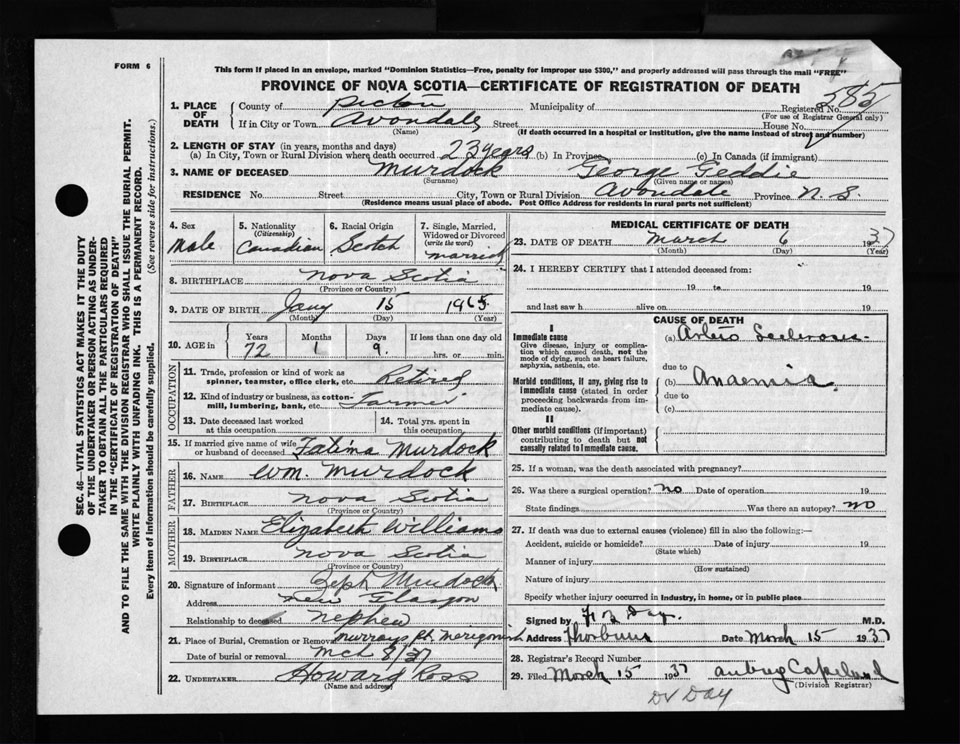 FORM 6
This form if placed in an envelope, marked "Dominion Statistics—Free, penalty for improper use $300," and properly addressed will pass through the mail "FREE"
PROVINCE OF NOVA SCOTIA—CERTIFICATE OF REGISTRATION OF DEATH
1. PLACE OF DEATH County of Pictou Municipality of Registered No. 585
(For use of Registrar General only)
If in City or Town Avondale Street House No.
(Name) (If death occurred in a hospital or institution, give the name instead of street and number)
2. LENGTH OF STAY (in years, months and days)
(a) In City, Town or Rural Division where death occurred 23 years (b) In Province (c) In Canada (if immigrant)
3. NAME OF DECEASED Murdock George Geddie
(Surname) (Given name or names)
RESIDENCE No. Street City, Town or Rural Division Avondale Province N. S.
(Residence means usual place of abode. Post Office Address for residents in rural parts not sufficient)
4. Sex Male
5. Nationality (Citizenship) Canadian
6. Racial Origin Scotch
7. Single, Married, Widowed or Divorced (write the word) married
8. BIRTHPLACE Nova Scotia
(Province or Country)
9. DATE OF BIRTH Jany 15 1965
(Month) (Day) (Year)
10. AGE in Years Months Days If less than one day old
72 1 9 hrs. or min.
OCCUPATION
11. Trade, profession or kind of work as spinner, teamster, office clerk, etc. Retired
12. Kind of industry or business, as cotton-mill, lumbering, bank, etc. Farmer
13. Date deceased last worked at this occupation
14. Total yrs. spent in this occupation
15. If married give name of wife or husband of deceased Fatima Murdock
FATHER
16. NAME Wm. Murdock
17. BIRTHPLACE Nova Scotia
(Province or Country)
MOTHER
18. MAIDEN NAME Elizabeth Williams
19. BIRTHPLACE Nova Scotia
(Province or Country)
20. Signature of informant Zeph Murdock
Address New Glasgow
Relationship to deceased nephew
21. Place of Burial, Cremation or Removal Murrays Pt. Merigomish
Date of burial or removal Mch 8/37
22. UNDERTAKER Howard Ross
(Name and address)
MEDICAL CERTIFICATE OF DEATH
23. DATE OF DEATH March 6 1937
(Month) (Day) (Year)
24. I HEREBY CERTIFY that I attended deceased from:
19 to 19
and last saw h alive on 19
CAUSE OF DEATH
I
Immediate cause
Give disease, injury or complication which caused death, not the mode of dying, such as heart failure, asphyxia, asthenia, etc.
(a) Arterio Sclerosis
due to
Morbid conditions, if any, giving rise to immediate cause (stated in order proceeding backwards from immediate cause).
(b) Anaemia
due to
(c)
II
Other morbid conditions (if important) contributing to death but not causally related to immediate cause.
25. If a woman, was the death associated with pregnancy?
26. Was there a surgical operation? No Date of operation 19
State findings Was there an autopsy? No
27. If death was due to external causes (violence) fill in also the following:—
Accident, suicide or homicide? Date of injury 19
(State which)
Manner of injury
(How sustained)
Nature of injury
Specify whether injury occurred in industry, in home, or in public place
Signed by Day. M.D.
Address Thorburn Date March 15 1937
28. Registrar's Record Number
29. Filed March 15 1937 Aubrey Copeland
(Division Registrar)
Dr Day
SEC. 46—VITAL STATISTICS ACT MAKES IT THE DUTY
OF THE UNDERTAKER OR PERSON ACTING AS UNDER-
TAKER TO OBTAIN ALL THE PARTICULARS REQUIRED
IN THE "CERTIFICATE OF REGISTRATION OF DEATH"
AND TO FILE THE SAME WITH THE DIVISION REGISTRAR WHO SHALL ISSUE THE BURIAL PERMIT.
WRITE PLAINLY WITH UNFADING INK. THIS IS A PERMANENT RECORD.
Every item of information should be carefully supplied. (See reverse side for instructions.)